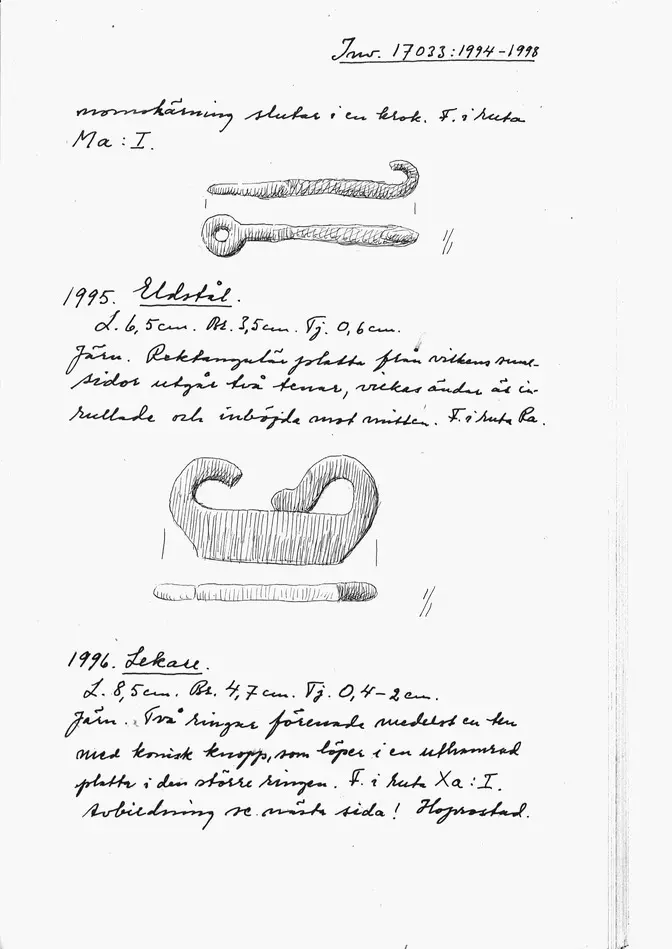 Inv. 17033:1994-1998
genomskärning slutar i en krok. F. i ruta
Ma : I.
1/1
1995. Eldstål.
L. 6,5 cm. Br. 3,5 cm. Tj. 0,6 cm.
Järn. Rektangulär platta från vilkens smal-
sidor utgår två tenar, vilkas ändar är in-
rullade och inböjda mot mitten. F. i ruta Ra.
1/1
1996. Lekare.
L. 8,5 cm. Br. 4,7 cm. Tj. 0,4-2 cm.
Järn. Två ringar förenade medelst en ten
med konisk knopp, som löper i en uthamrad
platta i den större ringen. F. i ruta Xa : I.
Avbildning se nästa sida! Hoprostad.